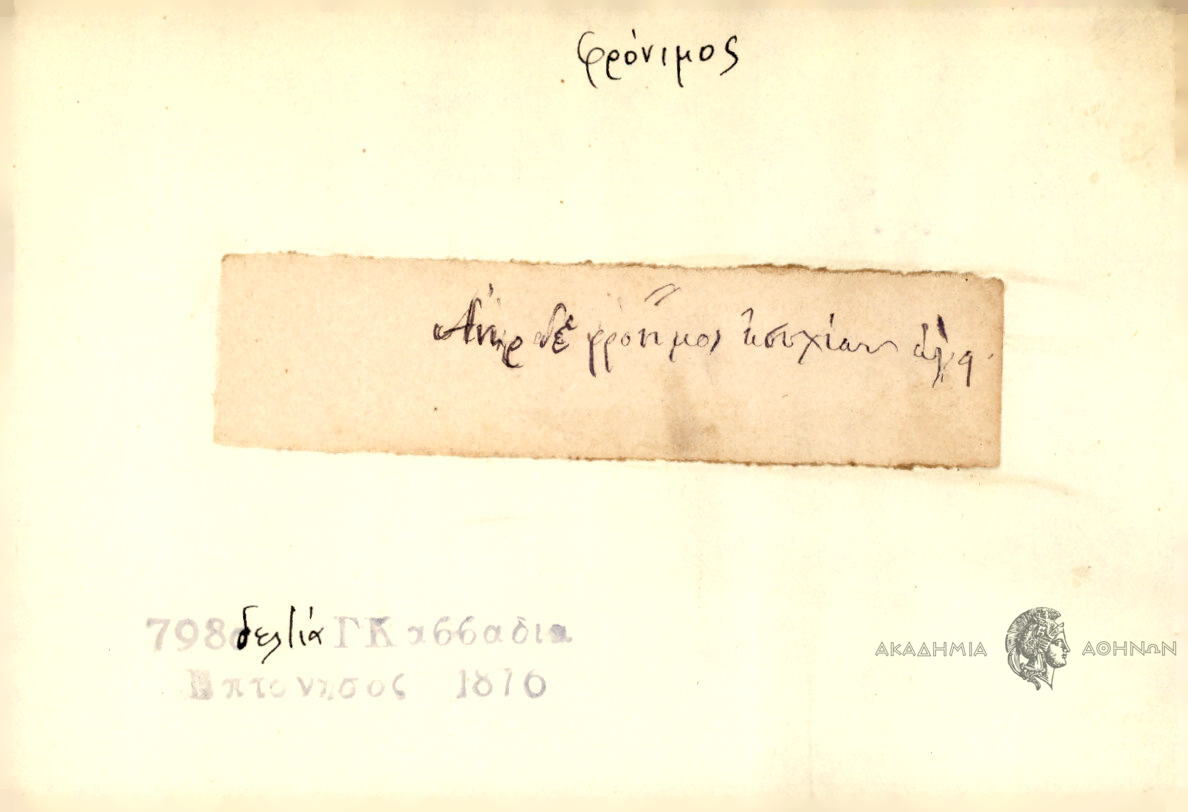 φρόνιμος
Ἀνὴρ δὲ φρόνημος ἡσυχίαν ἄγη.
δελτία Γ Κασσαδια
Επτονησος 1876
ΑΚΑΔΗΜΙΑ ΑΘΗΝΩΝ